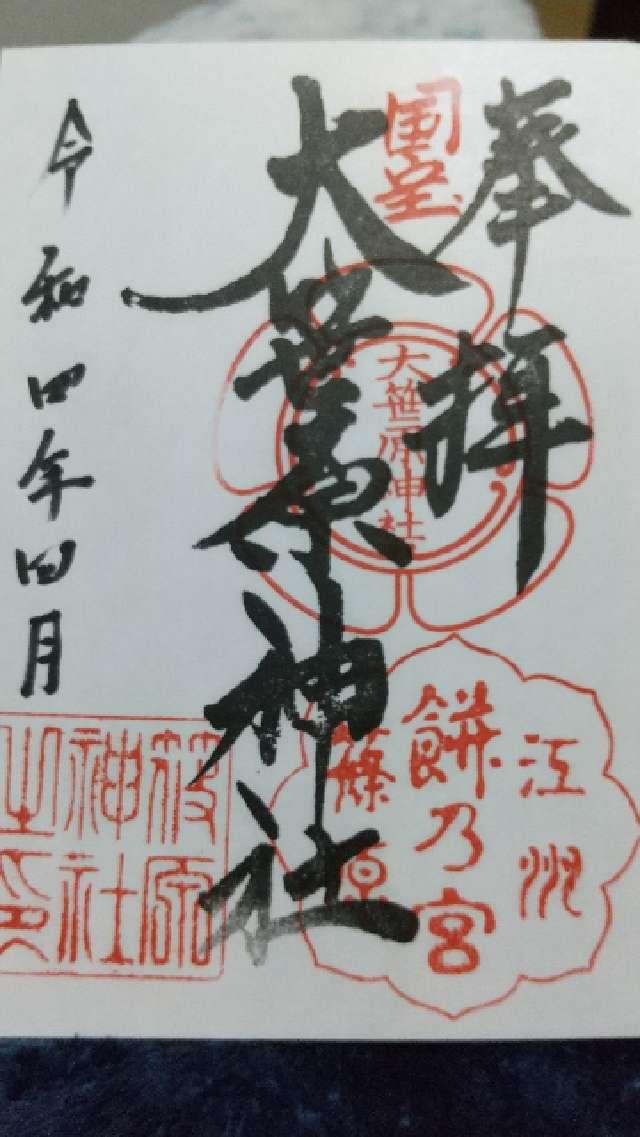 奉拝
国宝
大笹原神社
大笹原神社
江州
餅乃宮
篠原
笹原
神社
之印
令和四年四月